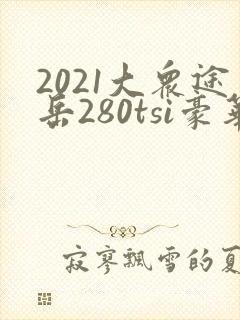 2021大众途
岳280tsi豪华
寂寥飘雪的夏